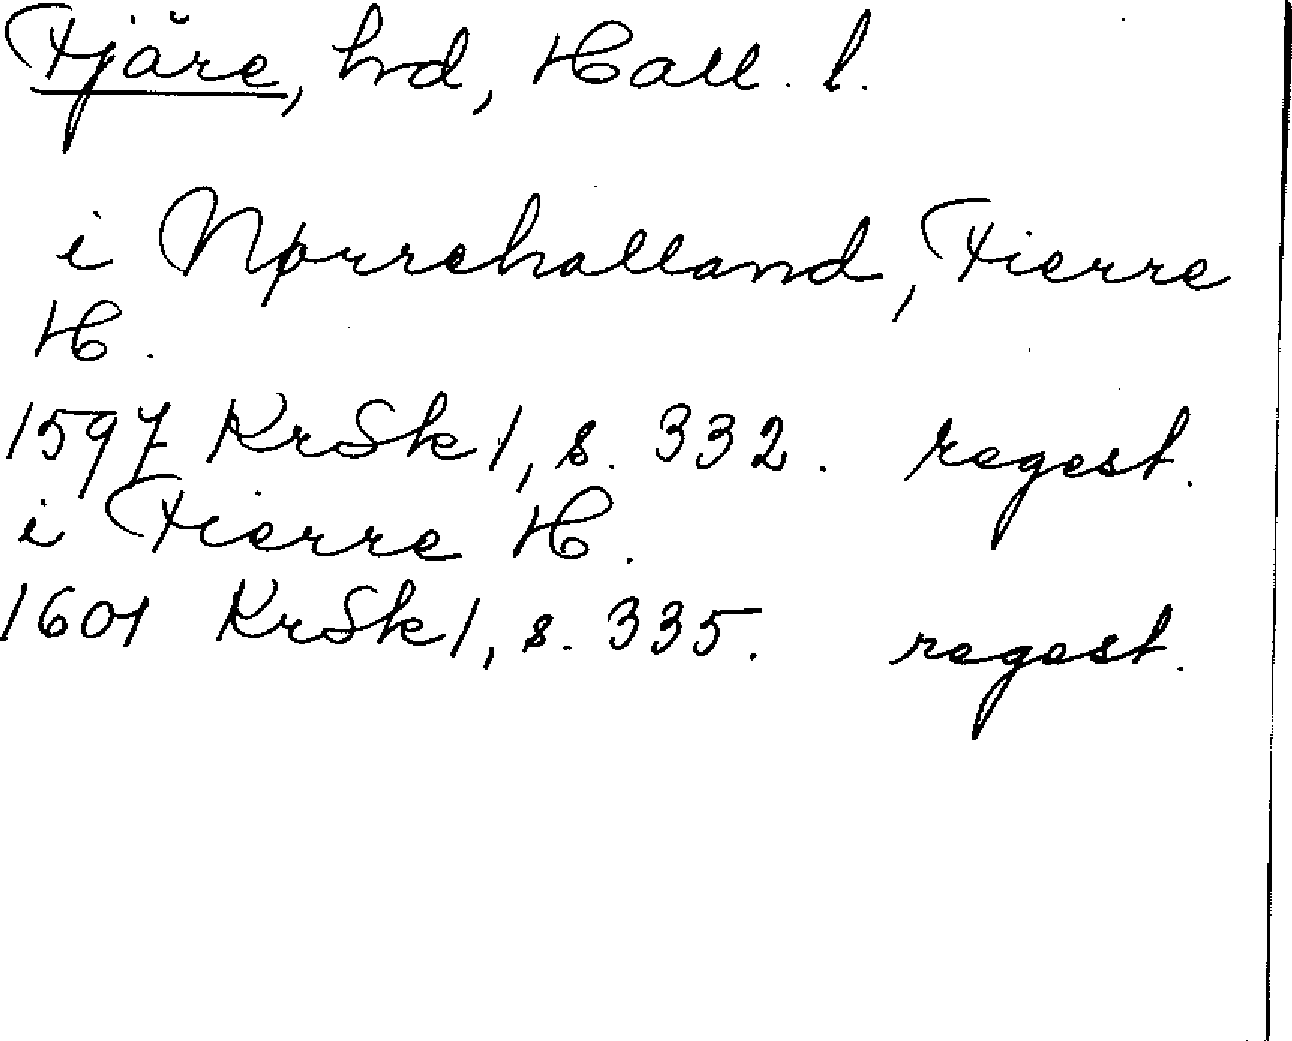 Fjäre, hd, Hall. l.
i Nørrehalland, Fierre
H.
1597 KrSk 1, s. 332. regest.
i Fierre H.
1601 KrSk 1, s. 335. regest.